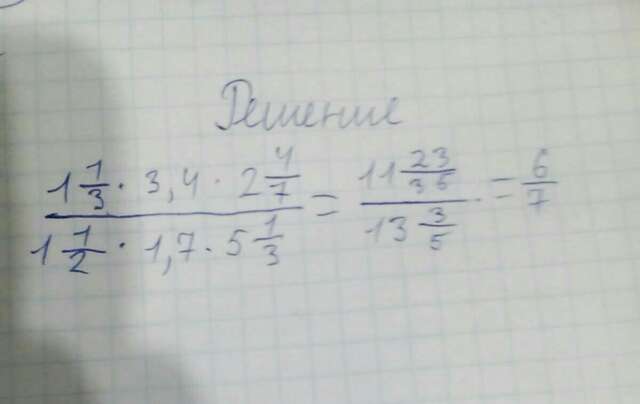 Решение
(1 1/3 · 3,4 · 2 4/7) / (1 1/2 · 1,7 · 5 1/3) = (11 23/35) / (13 3/5) = 6/7